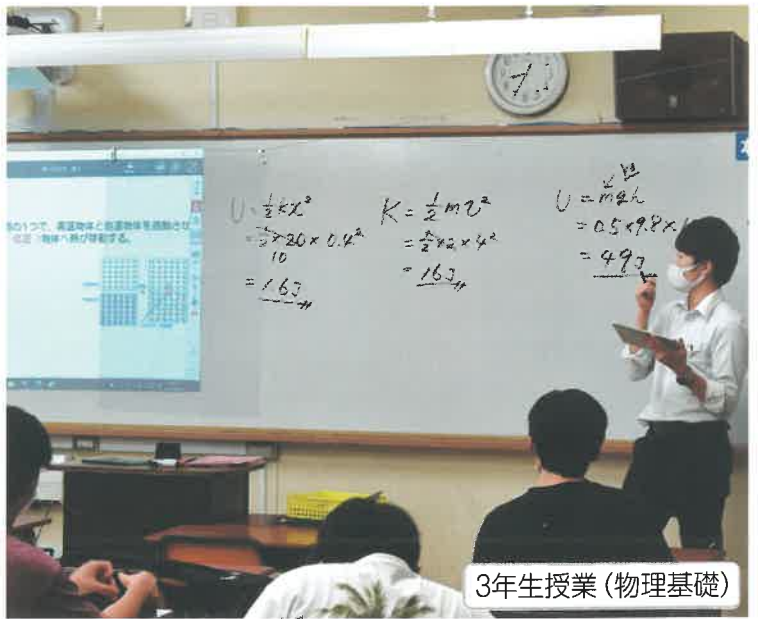 の1つで、高温物体と低温物体を接触させ
物体へ熱が移動する。
U = ½kx²
= ½×20×0.4²
10
= 1.6J
K = ½mv²
= ½×2×4²
= 16J
U = mgh
= 0.5×9.8×1
= 49J
3年生授業（物理基礎）